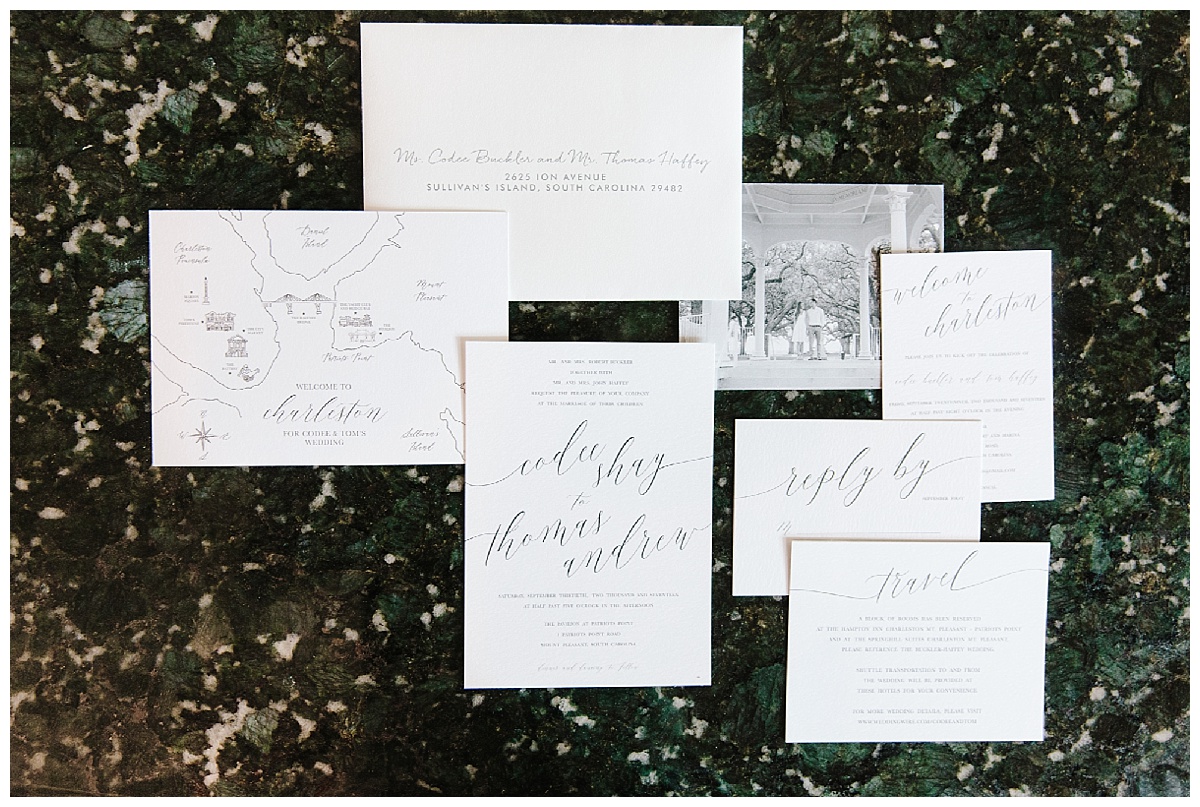 Ms. Codee Buckler and Mr. Thomas Haffey
2625 ION AVENUE
SULLIVAN'S ISLAND, SOUTH CAROLINA 29482
Charleston
Peninsula
Daniel
Island
Mount
Pleasant
Patriots Point
WELCOME TO
charleston
FOR CODEE & TOM'S
WEDDING
Sullivan's
Island
N
W E
S
MR. AND MRS. ROBERT BUCKLER
TOGETHER WITH
MR. AND MRS. JOHN HAFFEY
REQUEST THE PLEASURE OF YOUR COMPANY
AT THE MARRIAGE OF THEIR CHILDREN
codee
shay
to
thomas
andrew
SATURDAY, SEPTEMBER THIRTIETH, TWO THOUSAND AND SEVENTEEN
AT HALF PAST FIVE O'CLOCK IN THE AFTERNOON
THE
AT PATRIOTS POINT
PATRIOTS POINT ROAD
MOUNT PLEASANT, SOUTH CAROLINA
dinner and dancing to follow
welcome
to
charleston
PLEASE JOIN US TO KICK OFF THE CELEBRATION OF
codee buckler and tom haffey
reply by
SEPTEMBER
M
travel
A BLOCK OF ROOMS HAS BEEN RESERVED
AT THE HAMPTON INN CHARLESTON MT. PLEASANT - PATRIOTS POINT
AND AT THE SPRINGHILL SUITES CHARLESTON MT. PLEASANT.
PLEASE REFERENCE THE BUCKLER-HAFFEY WEDDING.
SHUTTLE TRANSPORTATION TO AND FROM
THE WEDDING WILL BE PROVIDED AT
THESE HOTELS FOR YOUR CONVENIENCE.
FOR MORE WEDDING DETAILS, PLEASE VISIT
WWW.WEDDINGWIRE.COM/CODEEANDTOM